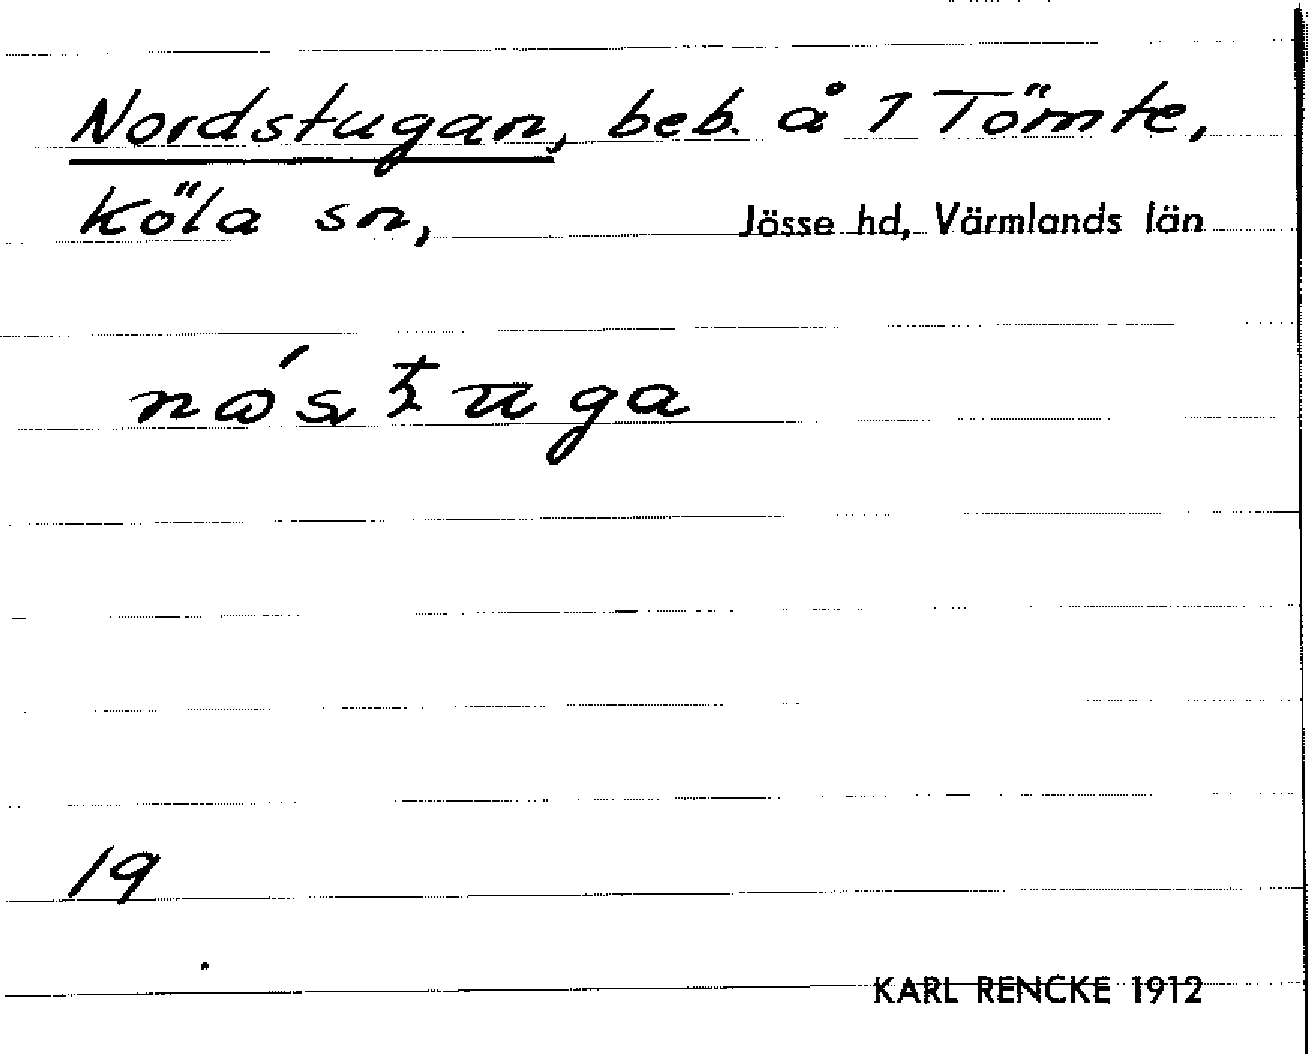 Nordstugan, beb. å 1 Tömte,
Köla sn, Jösse hd, Värmlands län
nåśtuga
19
KARL RENCKE 1912